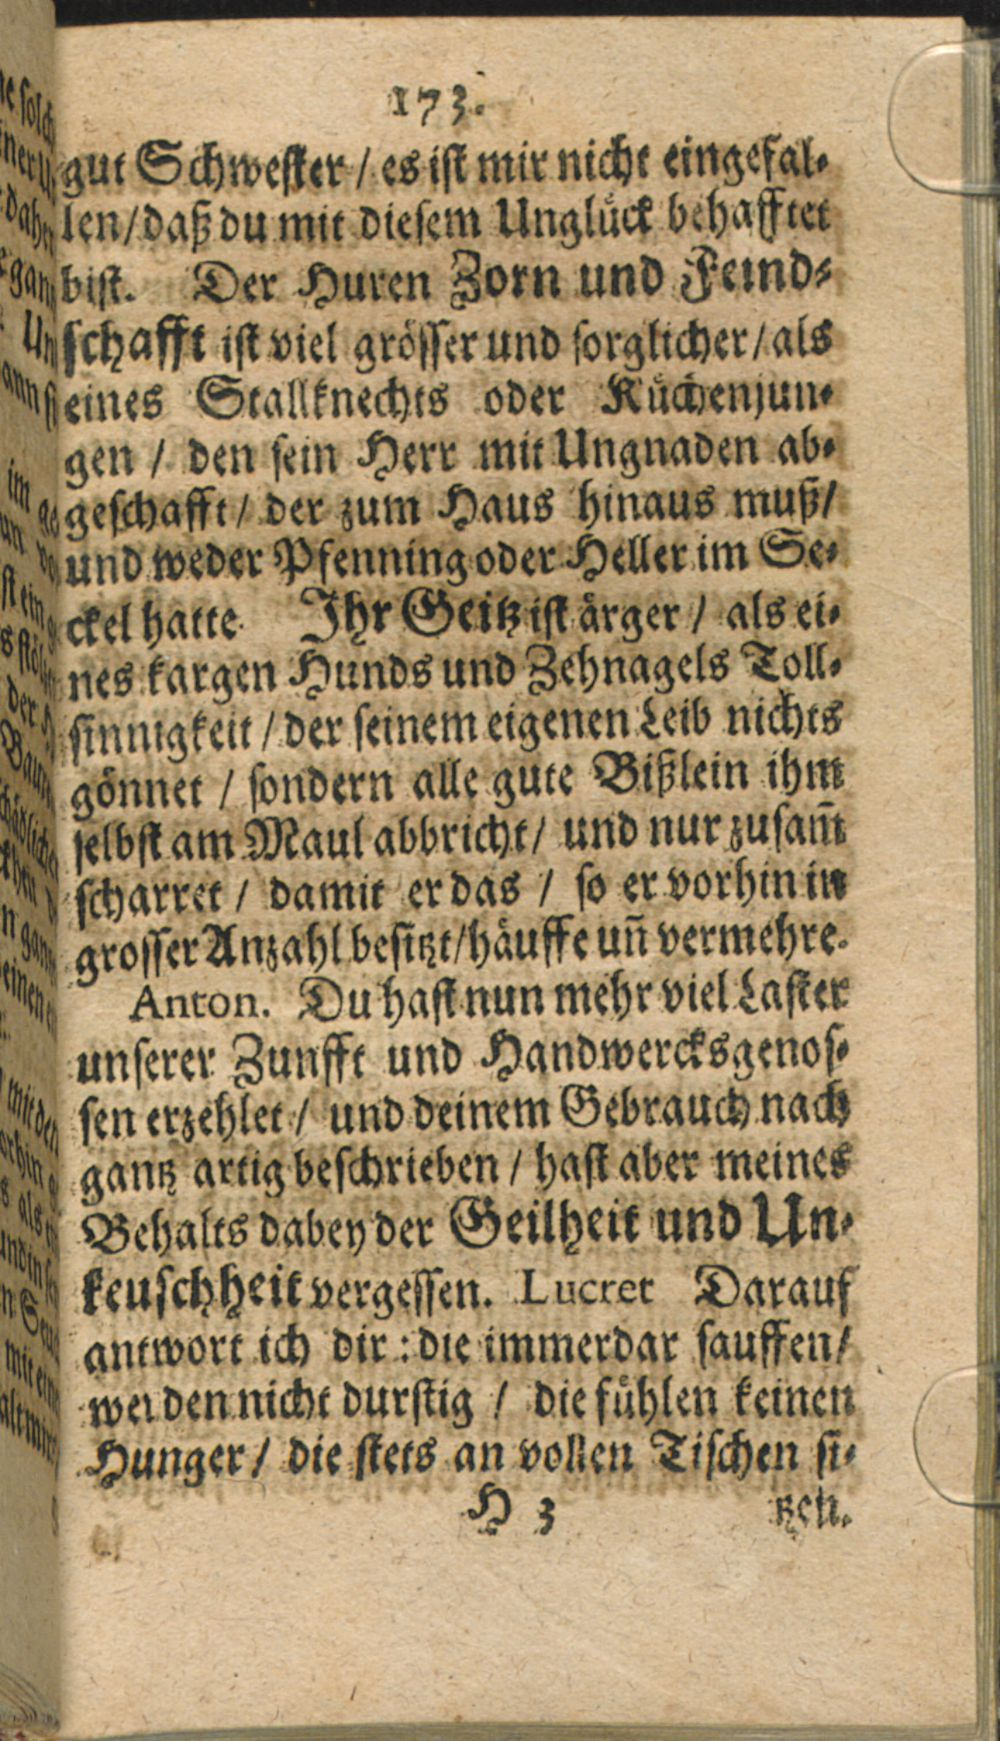 173.
gut Schwester / es ist mir nicht eingefal-
len / daß du mit diesem Unglück behafftet
bist. Der Huren Zorn und Feind-
schafft ist viel grösser und sorglicher / als
eines Stallknechts oder Küchenjun-
gen / den sein Herr mit Ungnaden ab-
geschafft / der zum Haus hinaus muß /
und weder Pfenning oder Heller im Se-
ckel hatte. Ihr Geitz ist ärger / als ei-
nes kargen Hunds und Zehnagels Toll-
sinnigkeit / der seinem eigenen Leib nichts
gönnet / sondern alle gute Bißlein ihm
selbst am Maul abbricht / und nur zusam̄
scharret / damit er das / so er vorhin in
grosser Anzahl besitzt / häuffe un̄ vermehre.
Anton. Du hast nun mehr viel Laster
unserer Zunfft und Handwercksgenos-
sen erzehlet / und deinem Gebrauch nach
gantz artig beschrieben / hast aber meines
Behalts dabey der Geilheit und Un-
keuschheit vergessen. Lucret Darauf
antwort ich dir : die immerdar sauffen /
werden nicht durstig / die fühlen keinen
Hunger / die stets an vollen Tischen si-
H 3 tzen.